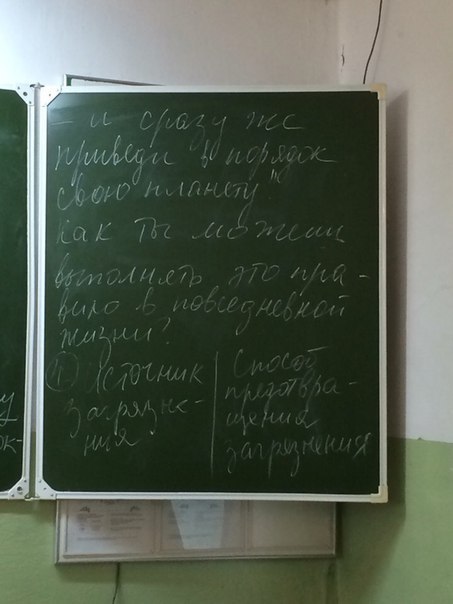 – и сразу же
приведи в порядок
свою планету"
как ты можешь
выполнять это пра-
вило в повседневной
жизни?
1 Источник
загрязне-
ния
Способ
предотвра-
щения
загрязнения